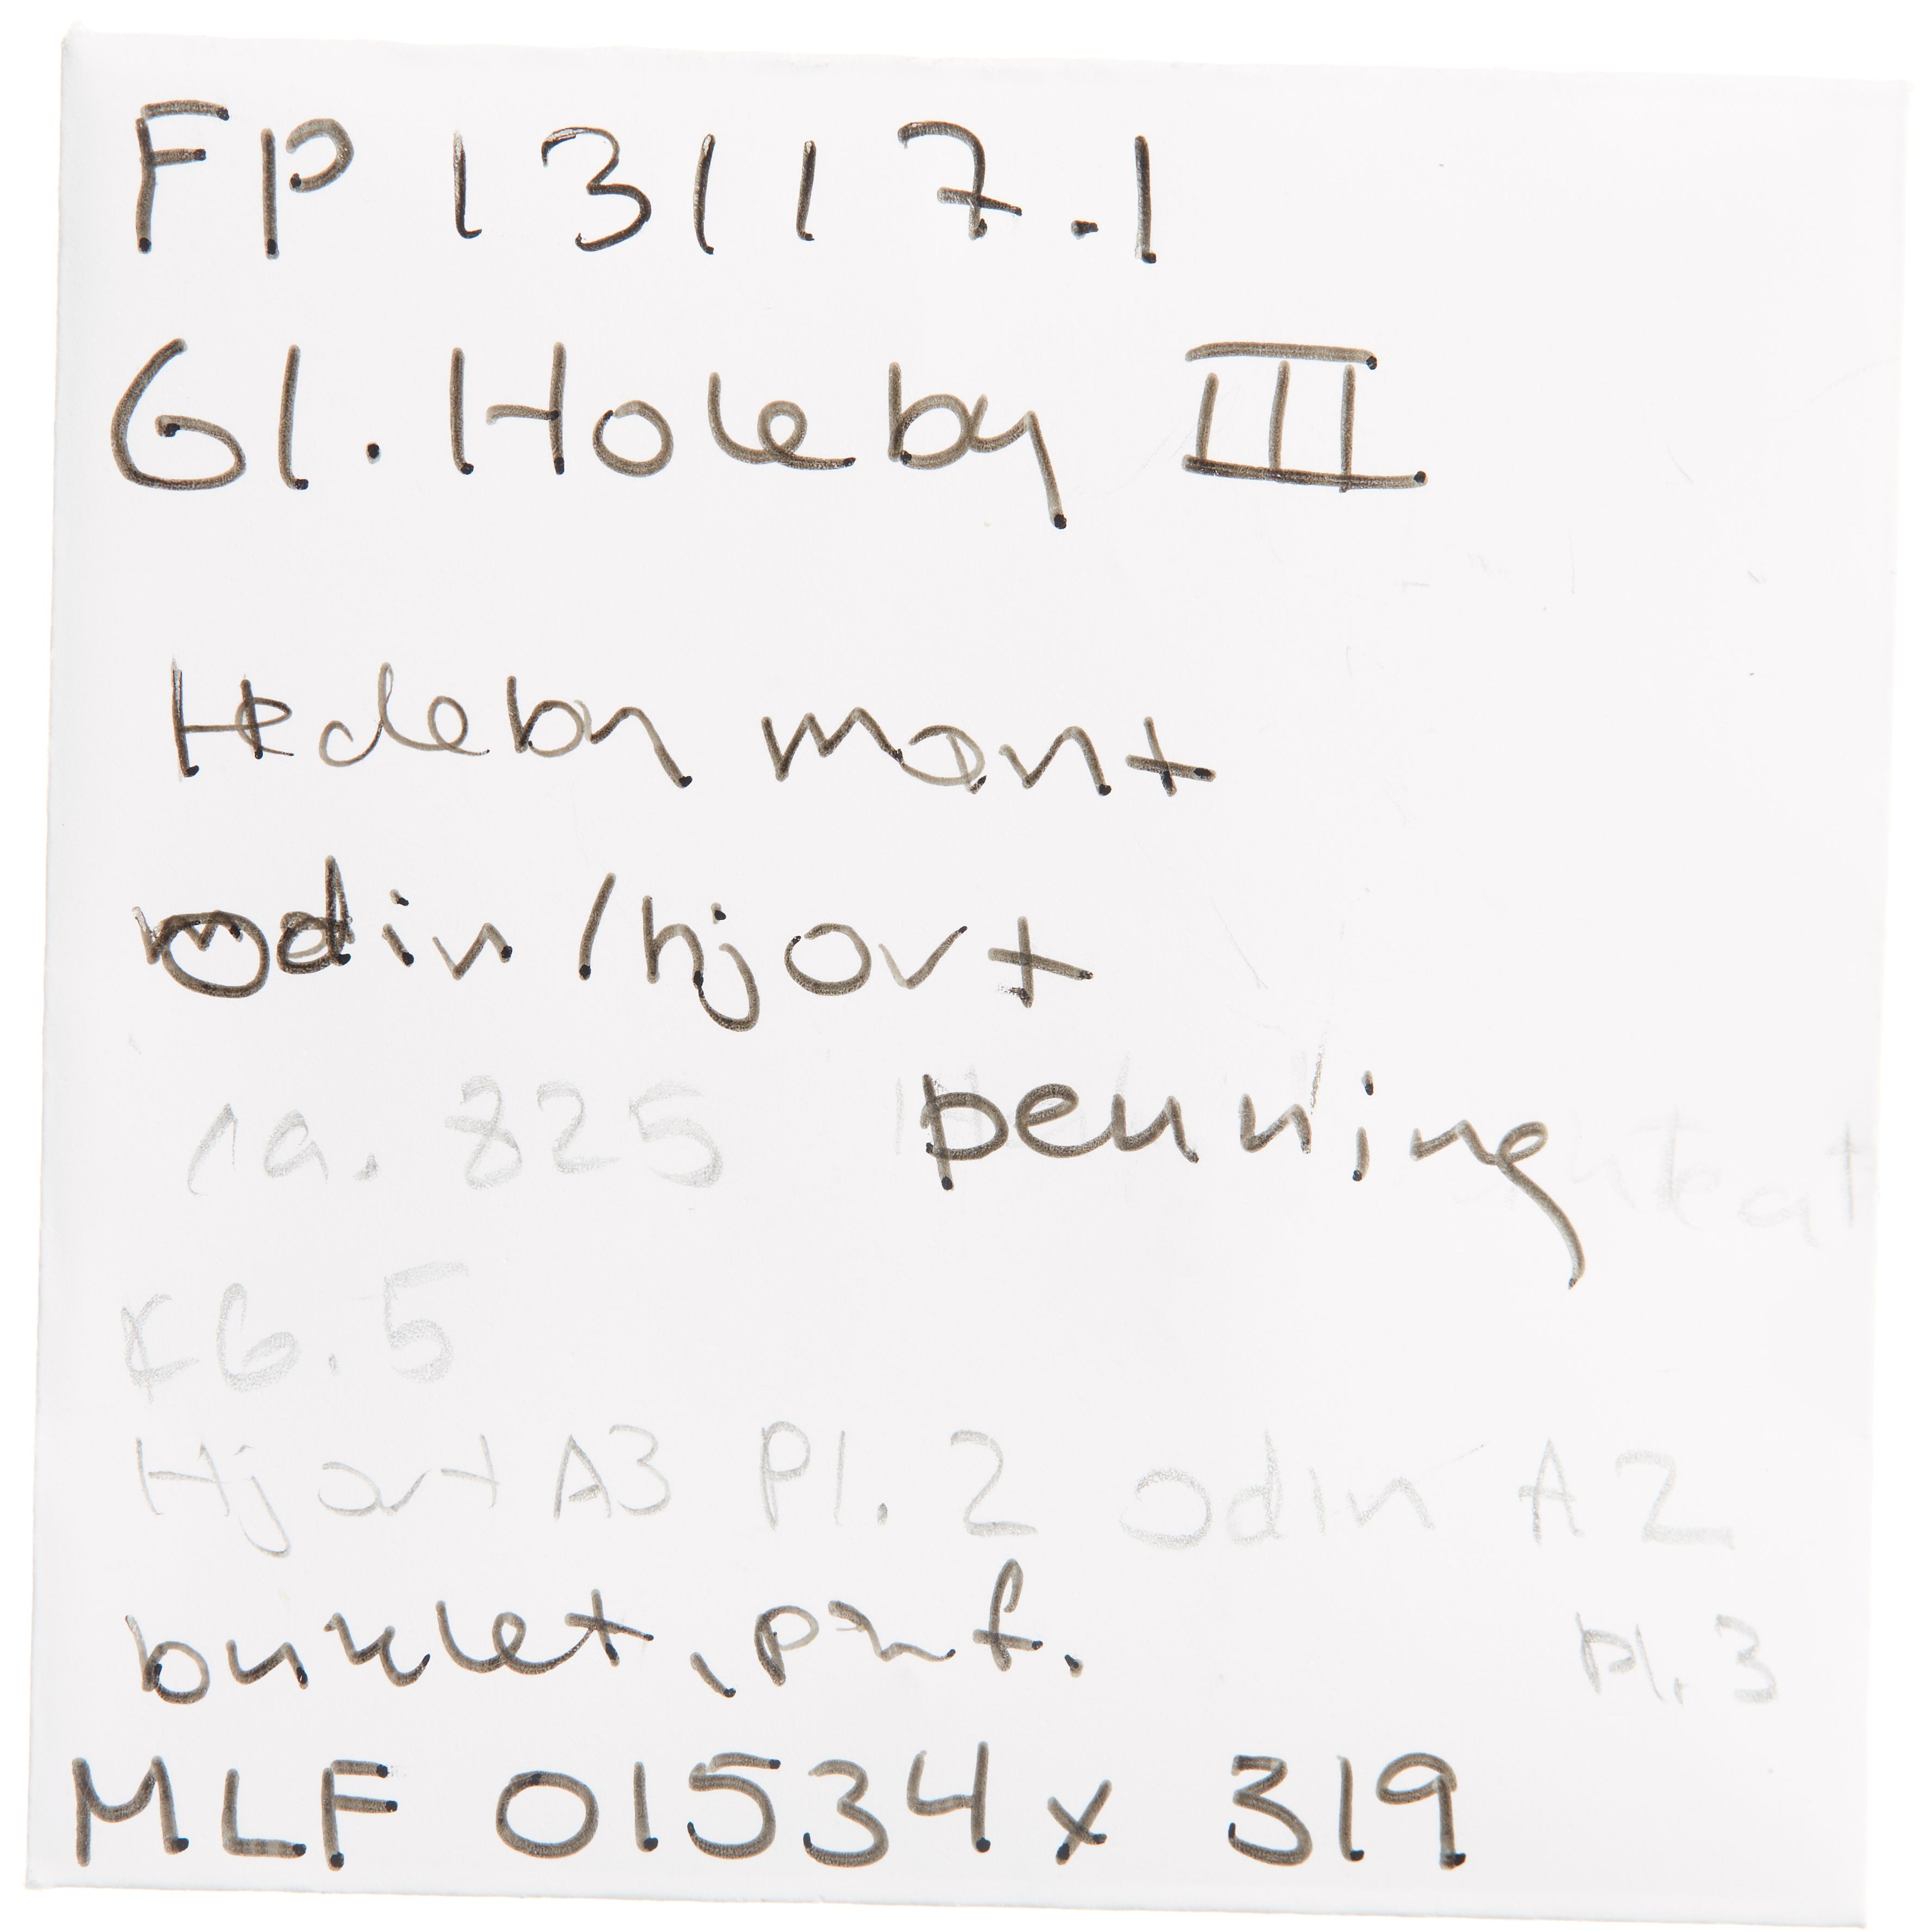 FP 13117.1
Gl. Holeby III
Hedeby mønt
odin/hjort
ca. 825 penning
K6.5
Hjort A3 Pl. 2 Odin A2
Pl. 3
buklet, perf.
MLF 01534x319